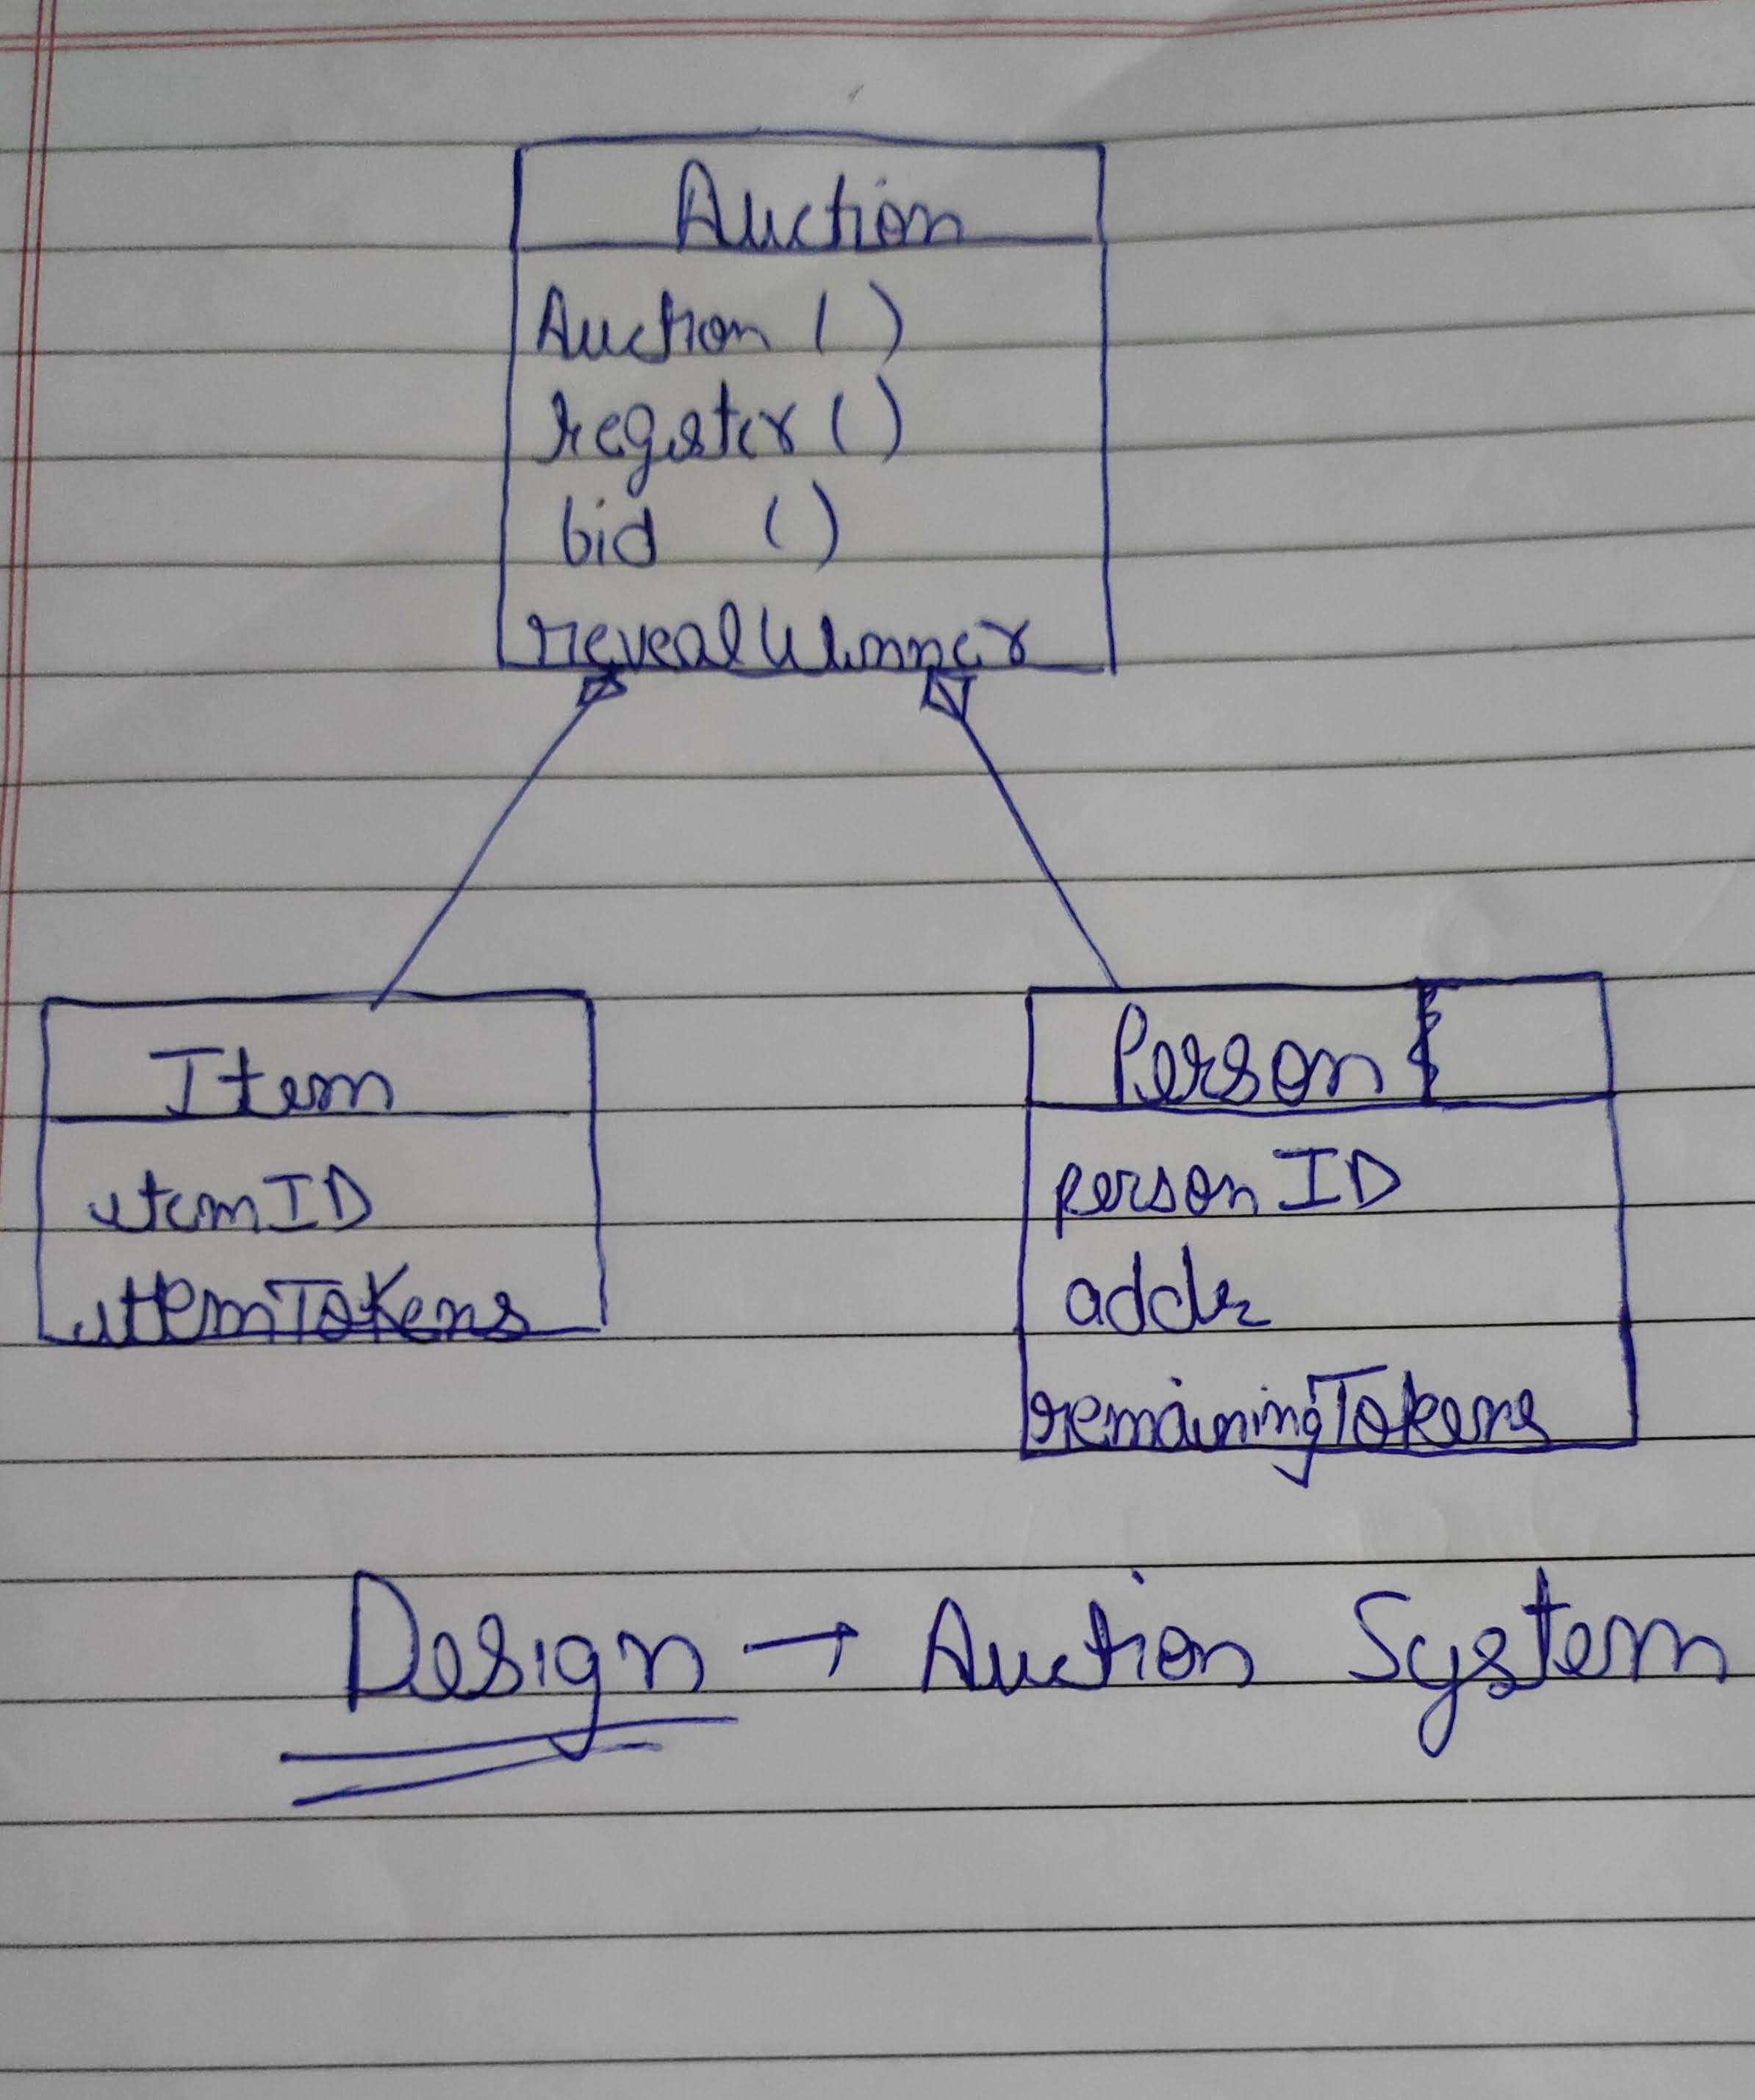 Auction
Auction ( )
register ( )
bid ( )
revealWinner
Item
itemID
itemTokens
Person
personID
addr
remainingTokens
Design → Auction System